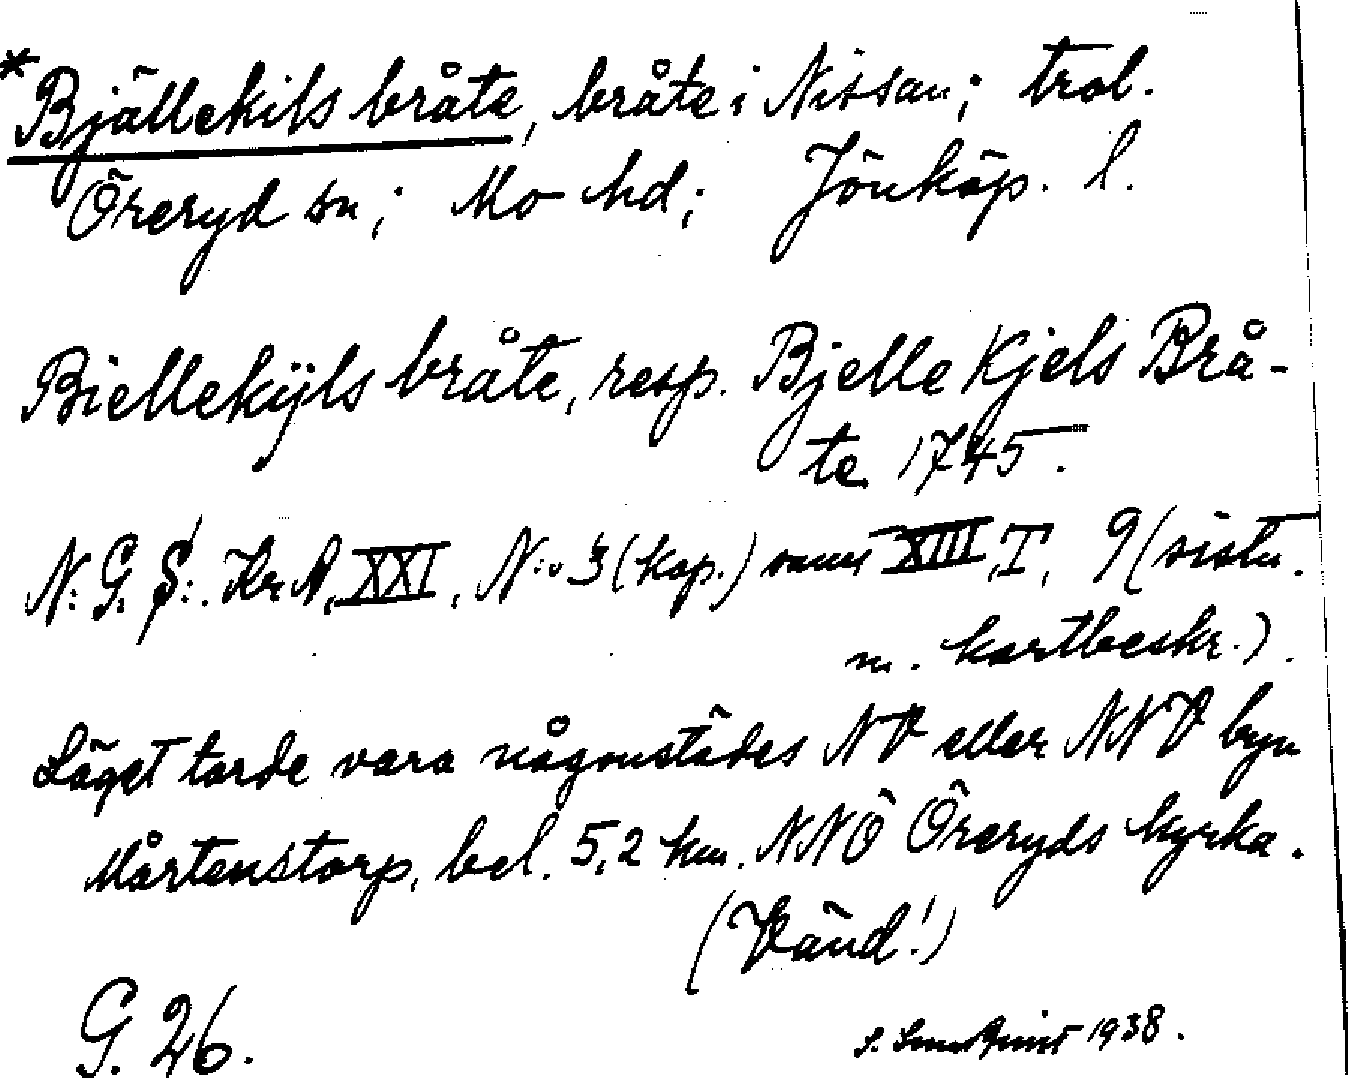 *Bjällekils bråte, bråte i Nissan; trol.
Öreryd sn; Mo hd; Jönköp. l.
Biellekijls bråte, resp. Bjelle Kjels Brå-
te 1745.
N: G. S:. Kr. A, XXI, N:o 3 (kop.) samt XIII, I, 9 (sistn.
m. kartbeskr.).
Läget torde vara någonstädes NV eller NNV byn
Mårtenstorp, bel. 5,2 km. NNÖ Öreryds kyrka.
(Vänd!)
G. 26.
1938.